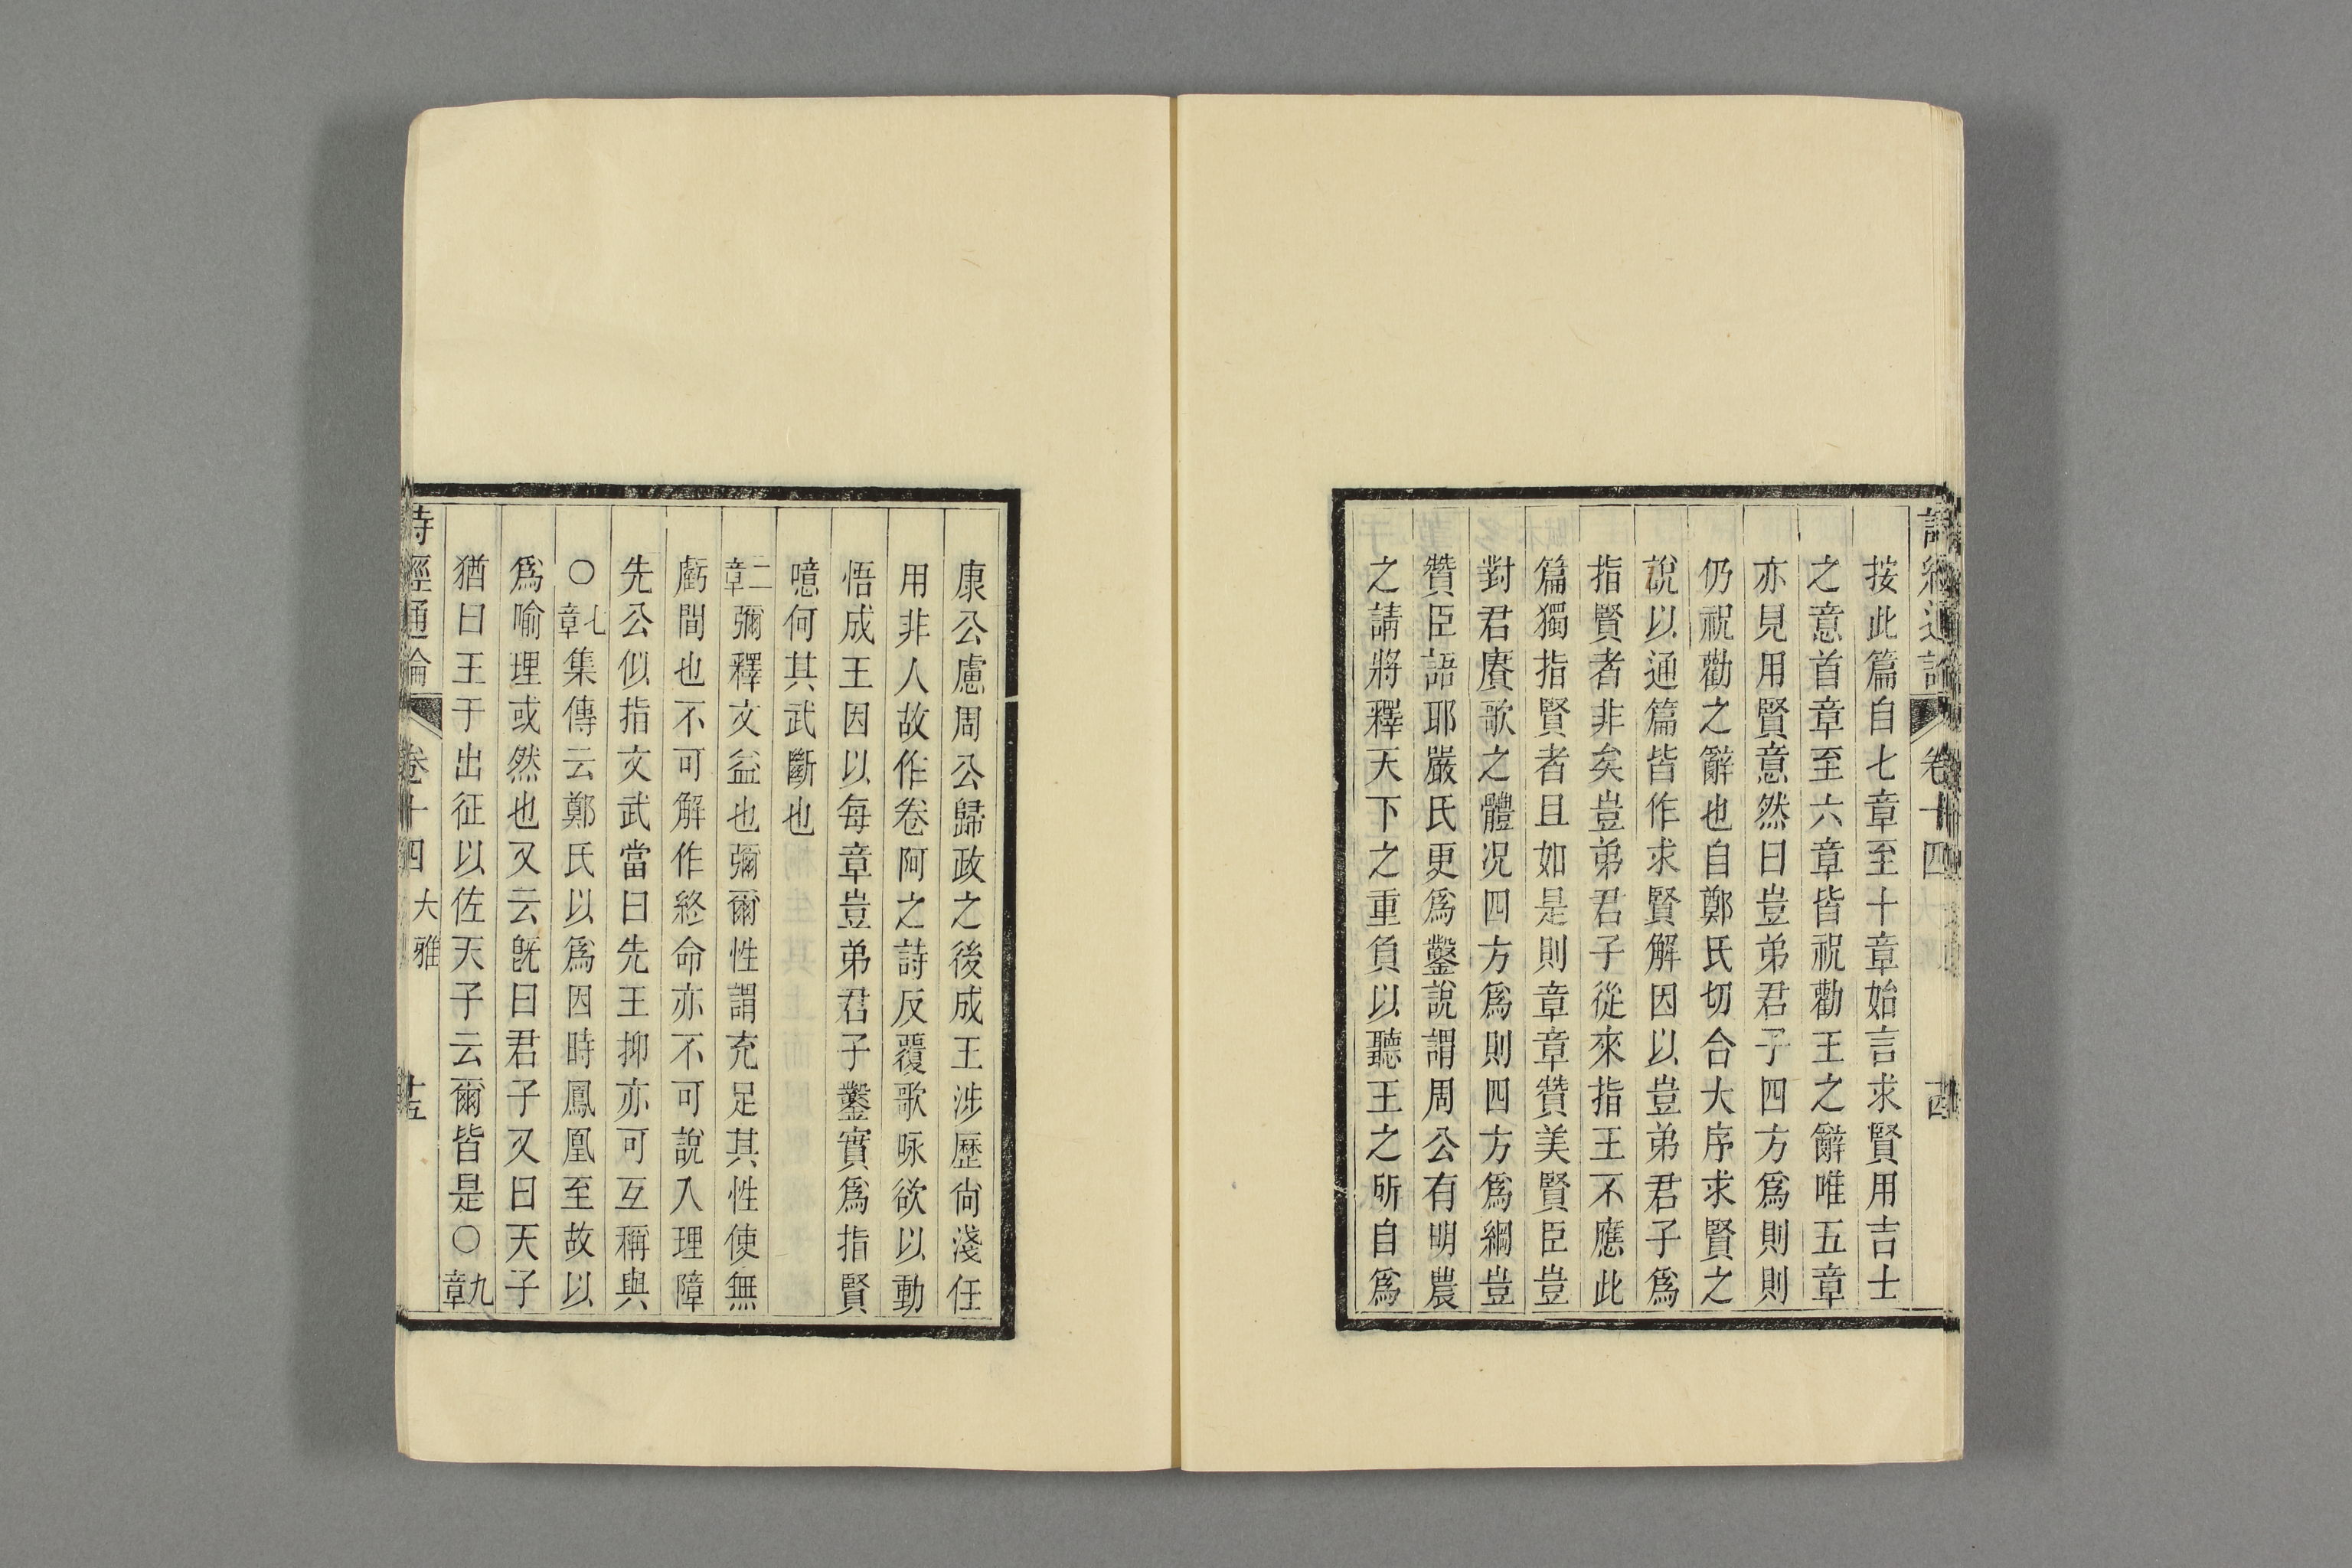 按此篇自七章至十章始言求賢用吉士
之意首章至六章皆祝勸王之辭唯五章
亦見用賢意然曰豈弟君子四方爲則則
仍祝勸之辭也自鄭氏切合大序求賢之
說以通篇皆作求賢解因以豈弟君子爲
指賢者非矣豈弟君子從來指王不應此
篇獨指賢者且如是則章章贊美賢臣豈
對君賡歌之體况四方爲則四方爲綱豈
贊臣語耶嚴氏更爲鑿說謂周公有明農
之請將釋天下之重負以聽王之所自爲
康公慮周公歸政之後成王涉歷尙淺任
用非人故作卷阿之詩反覆歌咏欲以動
悟成王因以每章豈弟君子鑿實爲指賢
噫何其武斷也
二章彌釋文益也彌爾性謂充足其性使無
虧間也不可解作終命亦不可說入理障
先公似指文武當曰先王抑亦可互稱與
○七章集傳云鄭氏以爲因時鳳凰至故以
爲喻理或然也又云旣曰君子又曰天子
猶曰王于出征以佐天子云爾皆是○九章
詩經通論 卷十四 大雅